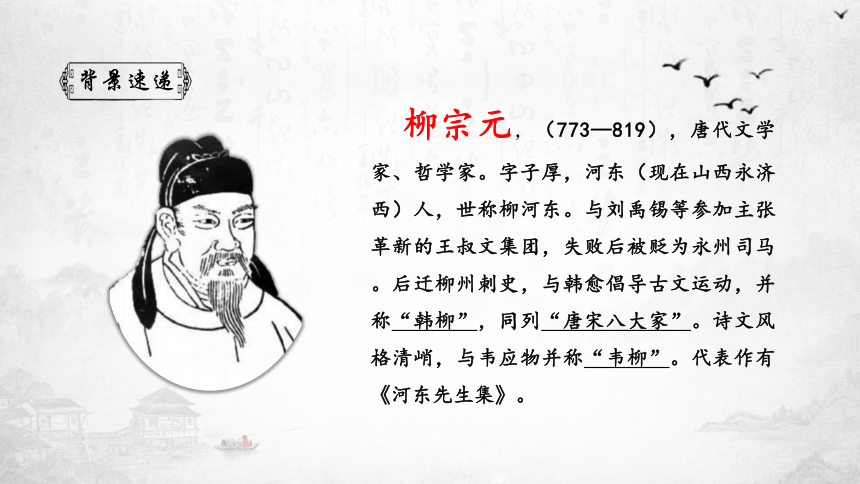 背景速递
柳宗元，（773—819），唐代文学
家、哲学家。字子厚，河东（现在山西永济
西）人，世称柳河东。与刘禹锡等参加主张
革新的王叔文集团，失败后被贬为永州司马
。后迁柳州刺史，与韩愈倡导古文运动，并
称“韩柳”，同列“唐宋八大家”。诗文风
格清峭，与韦应物并称“韦柳”。代表作有
《河东先生集》。